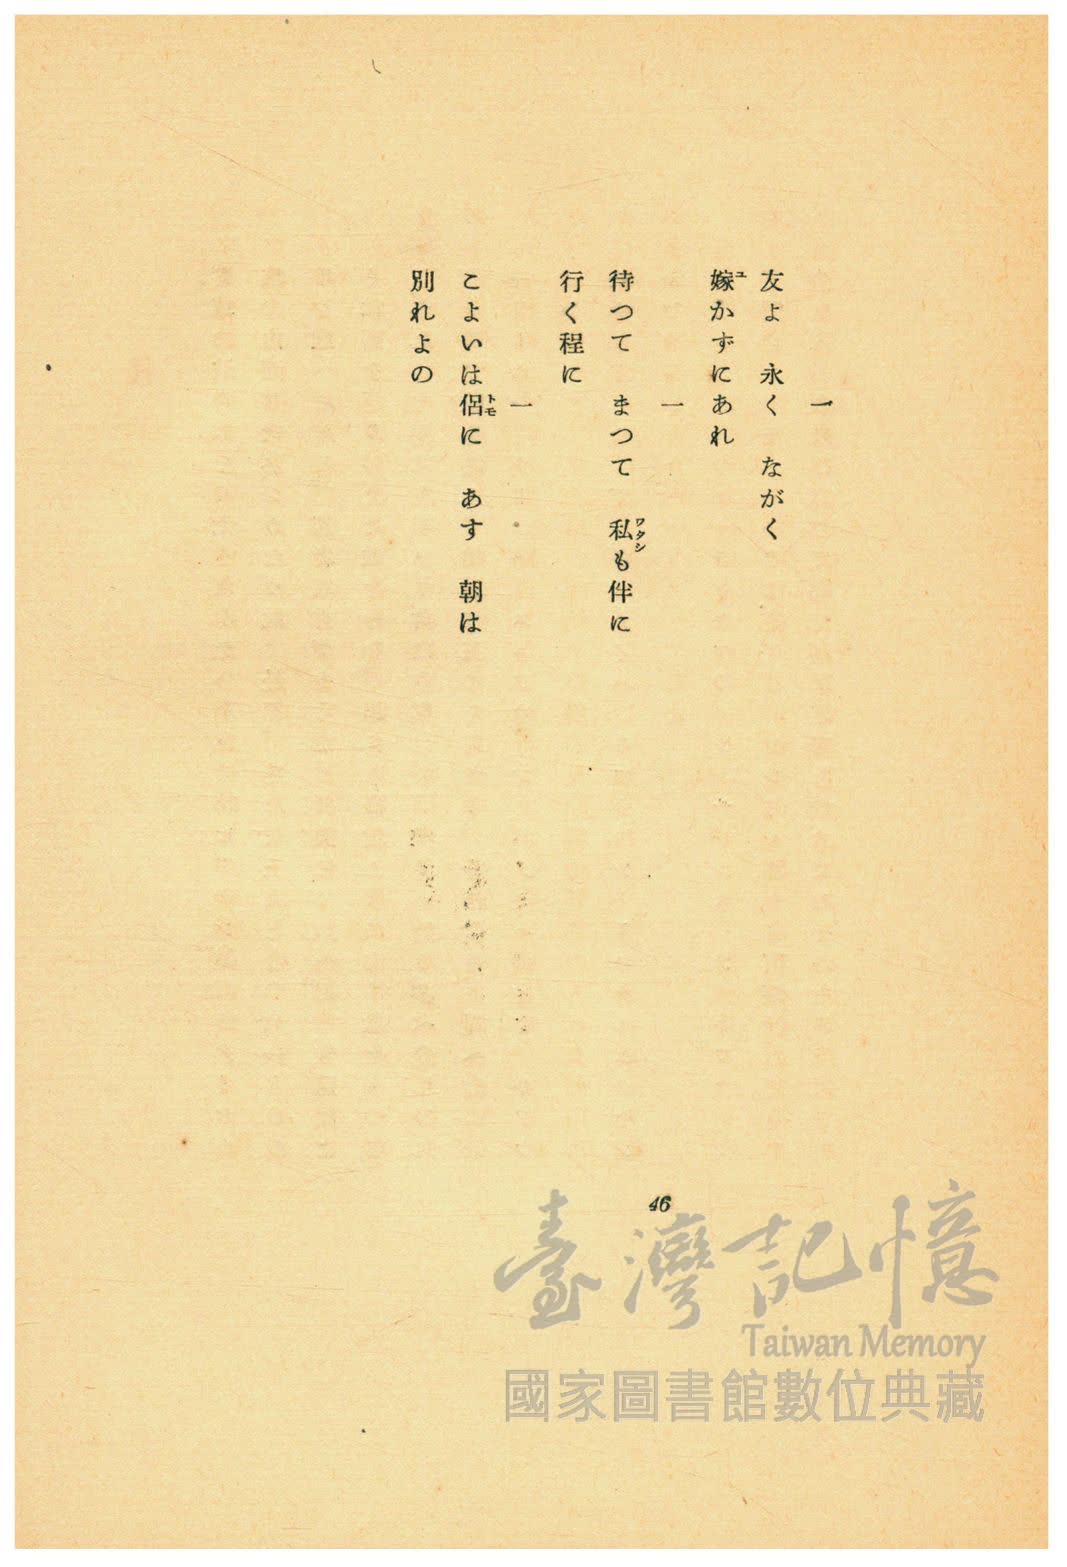 一
友よ　永く　ながく
嫁ユかずにあれ
一
待つて　まつて　私ワタシも伴に
行く程に
一
こよいは侶トモに　あす　朝は
別れよの
46
臺灣記憶
Taiwan Memory
國家圖書館數位典藏